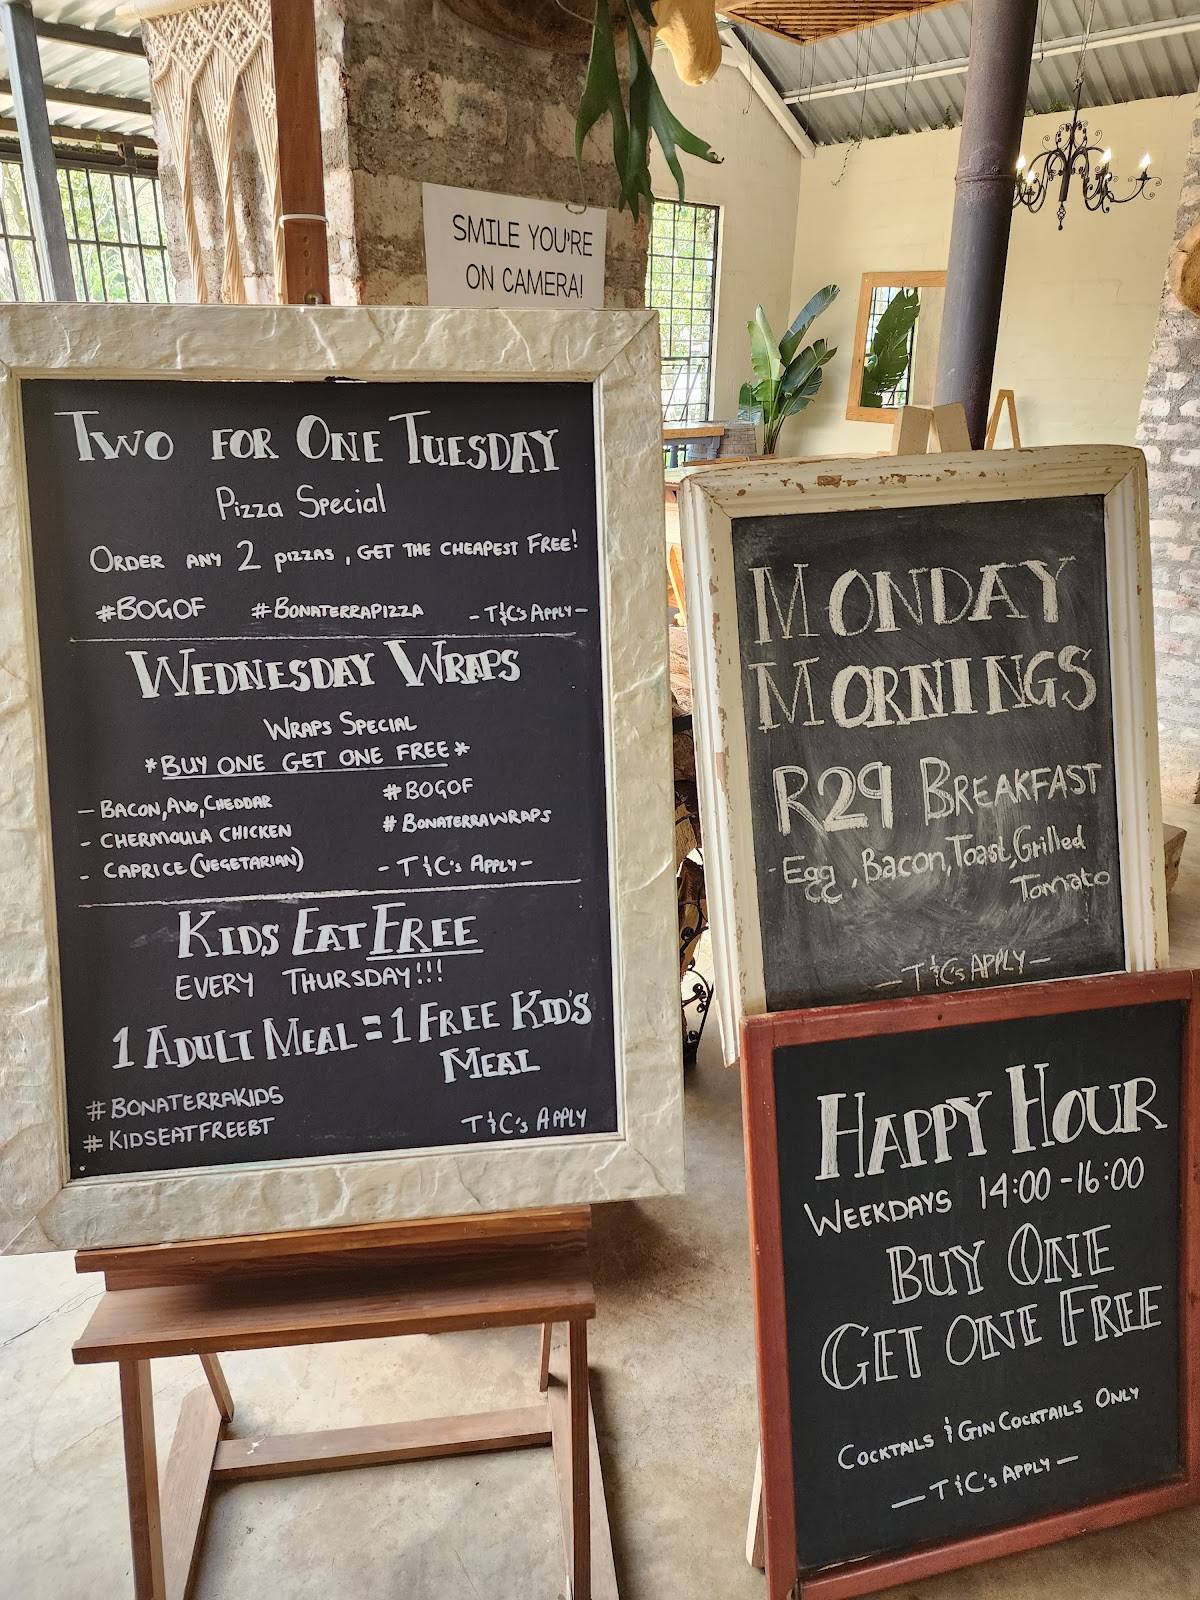 SMILE YOU'RE
ON CAMERA!
TWO FOR ONE TUESDAY
Pizza Special
ORDER ANY 2 PIZZAS, GET THE CHEAPEST FREE!
#BOGOF #BONATERRAPIZZA - T&C's APPLY -
WEDNESDAY WRAPS
WRAPS SPECIAL
*BUY ONE GET ONE FREE*
- BACON, AVO, CHEDDAR
- CHERMOULA CHICKEN
- CAPRICE (VEGETARIAN)
#BOGOF
#BONATERRAWRAPS
- T&C's APPLY -
KIDS EAT FREE
EVERY THURSDAY!!!
1 ADULT MEAL = 1 FREE KID'S
MEAL
#BONATERRAKIDS
#KIDSEATFREEBT
T&C's APPLY
MONDAY
MORNINGS
R29 BREAKFAST
- Egg, Bacon, Toast, Grilled
Tomato
- T&C's APPLY -
HAPPY HOUR
WEEKDAYS 14:00 - 16:00
BUY ONE
GET ONE FREE
COCKTAILS & GIN COCKTAILS ONLY
- T&C's APPLY -